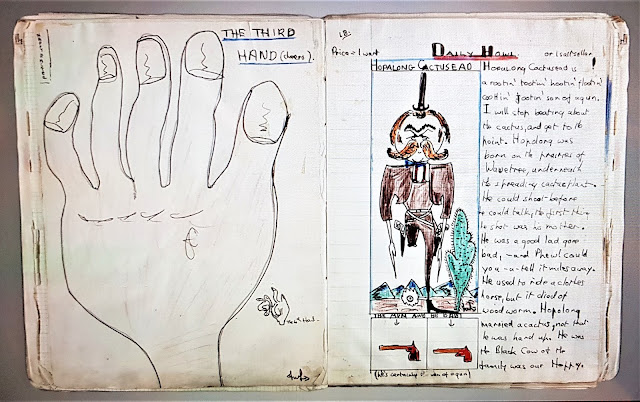 THE THIRD
HAND (cheers).
Price = 1 wart
DAILY HOWL
HOPALONG CACTUSEAD
Hopalong Cactusead is
a rootin' tootin' hootin' flootin'
footin' son of a gun.
I will stop beating about
the cactus, and get to the
point. Hopalong was
born on the prairies of
Wavetree, underneath
the spreading cactus plant.
He could shoot before
e could talk, the first thing
he shot was his mother.
He was a good lad gone
bad, - and Phew! could
you -a- tell it miles away.
He used to ride a clothes
horse, but it died of
woodworm. Hopalong
married a cactus, not that
he was hard up. He was
the Black Cow of the
family was our Hoppy.
THE MEN
(he's certainly a son of a gun)